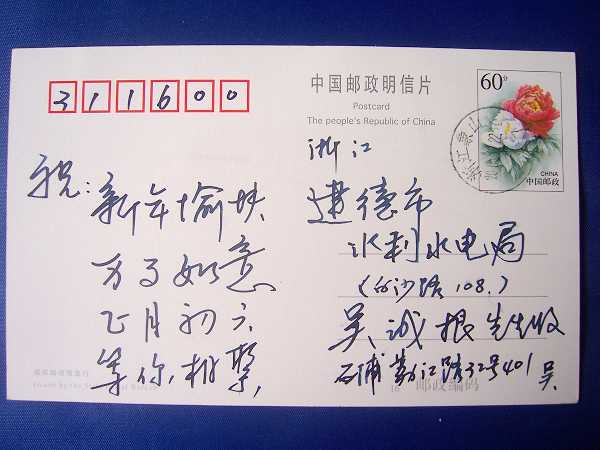 311600
中国邮政明信片
Postcard
The people's Republic of China
60分
CHINA
中国邮政
浙江象山
祝:新年愉快
万事如意
正月初六
等你相聚
浙江
建德市
水利水电局
(白沙路108.)
吴诚根先生收
石浦 江路32号401 吴
邮政编码